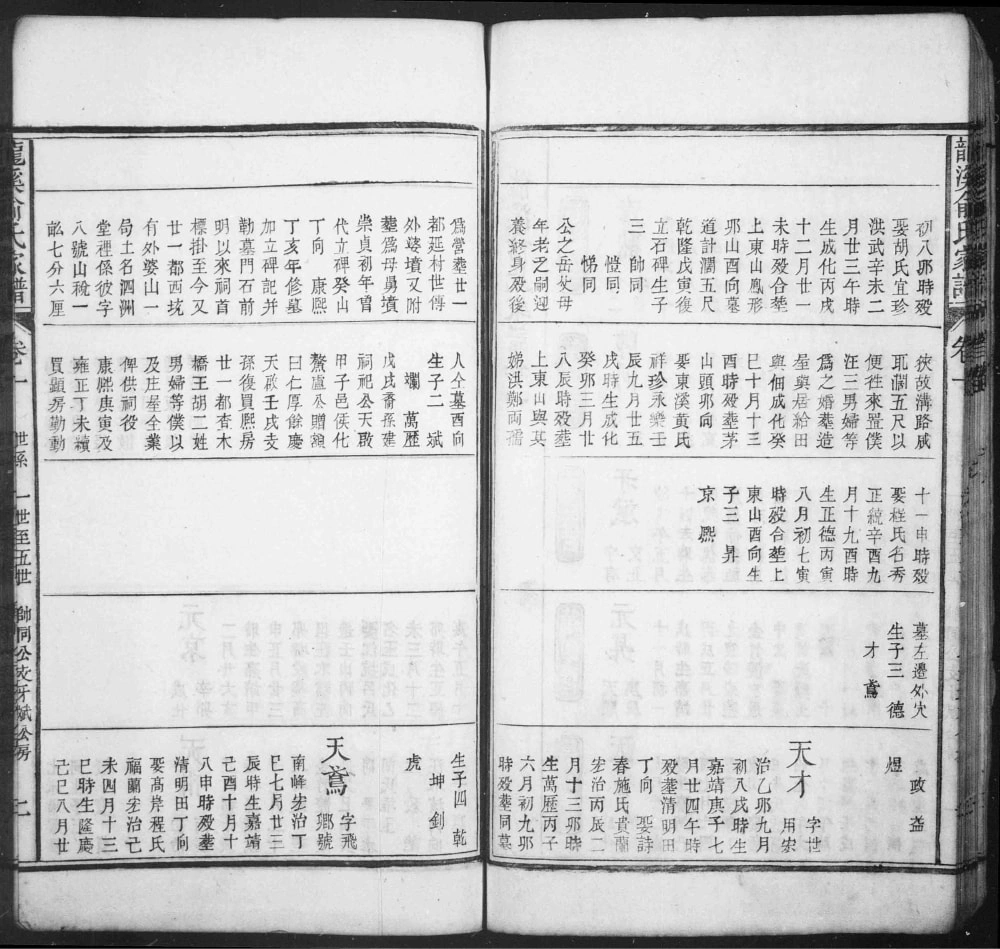 龍溪俞氏家譜
初八卯時殁
娶胡氏宜珍
洪武辛未二
月廿三午時
生成化丙戌
十二月廿一
未時殁合塟
上東山鳳形
卯山酉向墓
道計濶五尺
乾隆戊寅復
立石碑生子
三 帥同
愷同
悌同
公之岳父母
年老乏嗣迎
養終身殁後
為營塟廿一
都延村世傳
外婆墳又附
塟為母舅墳
崇貞初年曾
代立碑癸山
丁向 康熙
丁亥年修墓
加立碑記并
勒墓門石前
明以來祠首
標掛至今又
廿一都西坑
有外婆山一
局土名泗洲
堂裡係彼字
八號山稅一
畝七分六厘
俠故溝路戚
耽濶五尺以
便徃來置僕
汪三男婦等
為之婚塟造
屋與居給田
與佃成化癸
巳十月十三
酉時殁塟茅
山頭卯向
娶東溪黃氏
祥珍永樂壬
辰九月廿五
戌時生成化
癸卯三月廿
八辰時殁塟
上東山與其
娣洪鄭兩孺
人仝墓酉向
生子二 斌
斕 萬歷
戊戌裔孫建
祠祀公天啟
甲子邑侯化
鰲盧公贈額
曰仁厚餘慶
天啟壬戌支
孫復買熙房
廿一都杳木
橋王胡二姓
男婦等僕以
及庄屋全業
俾供祠役
康熙庚寅及
雍正丁未續
買顯房勤動
十一申時殁
娶程氏名秀
正統辛酉九
月十九酉時
生正德丙寅
八月初七寅
時殁合塟上
東山酉向生
子三 昇
京 熙
墓左邊外穴
生子三 德
才 鳶
政 益
煜
天才 字世
用宏
治乙卯九月
初八戌時生
嘉靖庚子七
月廿四午時
殁塟清明田
丁向 娶詩
春施氏貴蘭
宏治丙辰二
月十三卯時
生萬歷丙子
六月初九卯
時殁塟同墓
生子四 乾
坤 劍
虎
天鳶 字飛
鄉號
南峰宏治丁
巳七月廿三
辰時生嘉靖
己酉十月十
八申時殁塟
清明田丁向
娶髙岸程氏
福蘭宏治己
未四月十三
巳時生隆慶
己巳八月廿
龍溪俞氏家譜
卷一
世系 一世至五世 帥同公支牙斌公房